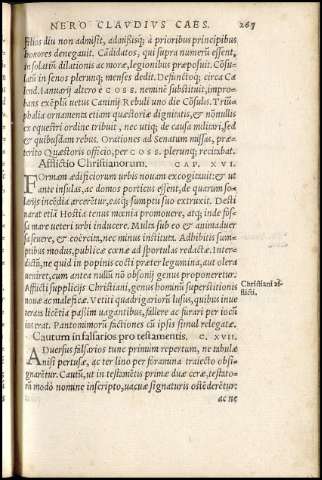 NERO CLAVDIVS CAES. 267
filios diu non admisit, admißisq; à prioribus principibus
honores denegauit. Cãdidatos, qui supra numerũ essent,
in solatiũ dilationis ac moræ, legionibus præposuit. Cõsu-
latũ in senos plerunq; menses dedit. Defunctoq; circa Ca
lend. Ianuarij altero è COSS. neminẽ substituit, impro-
bans exẽplũ uetus Caninij Rebuli uno die Cõsulis. Triũ-
phalia ornamenta etiam quæstoriæ dignitatis, & nonullis
ex equestri ordine tribuit, nec utiq; de causa militari, sed
& quibusdam rebus. Orationes ad Senatum missas, præ-
terito Quæstoris officio, per COSS. plerunq; recitabat.
Afflictio Christianorum. CAP. XVI.
FOrmam ædificiorum urbis nouam excogitauit: & ut
ante insulas, ac domos porticus essent, de quarum so-
larijs incẽdia arcerẽtur, easq; sumptu suo extruxit. Desti
narat etiã Hostia tenus mœnia promouere, atq; inde fos-
sa mare ueteri urbi inducere. Multa sub eo & animaduer
sa seuere, & coërcita, nec minus instituta. Adhibitus sum-
ptibus modus, publicæ cœnæ ad sportulas redactæ. Inter-
dictũ, ne quid in popinis cocti præter legumina, aut olera
ueniret, cum antea nullũ nõ obsonij genus proponeretur.
Afflicti supplicijs Christiani, genus hominũ superstitionis
nouæ ac maleficæ. Vetiti quadrigariorũ lusus, quibus inue
terata licẽtia passim uagantibus, fallere ac furari per iocũ
ius erat. Pantomimorũ factiones cũ ipsis simul relegatæ.
Christiani af-
flicti.
Cautum in falsarios pro testamentis. C. XVII.
ADuersus falsarios tunc primum repertum, ne tabulæ
nisi pertusæ, ac ter lino per foramina traiecto obsi-
gnarẽtur. Cautũ, ut in testamẽtis primæ duæ ceræ, testato-
rũ modò nomine inscripto, uacuæ signaturis ostẽderẽtur:
ac ne